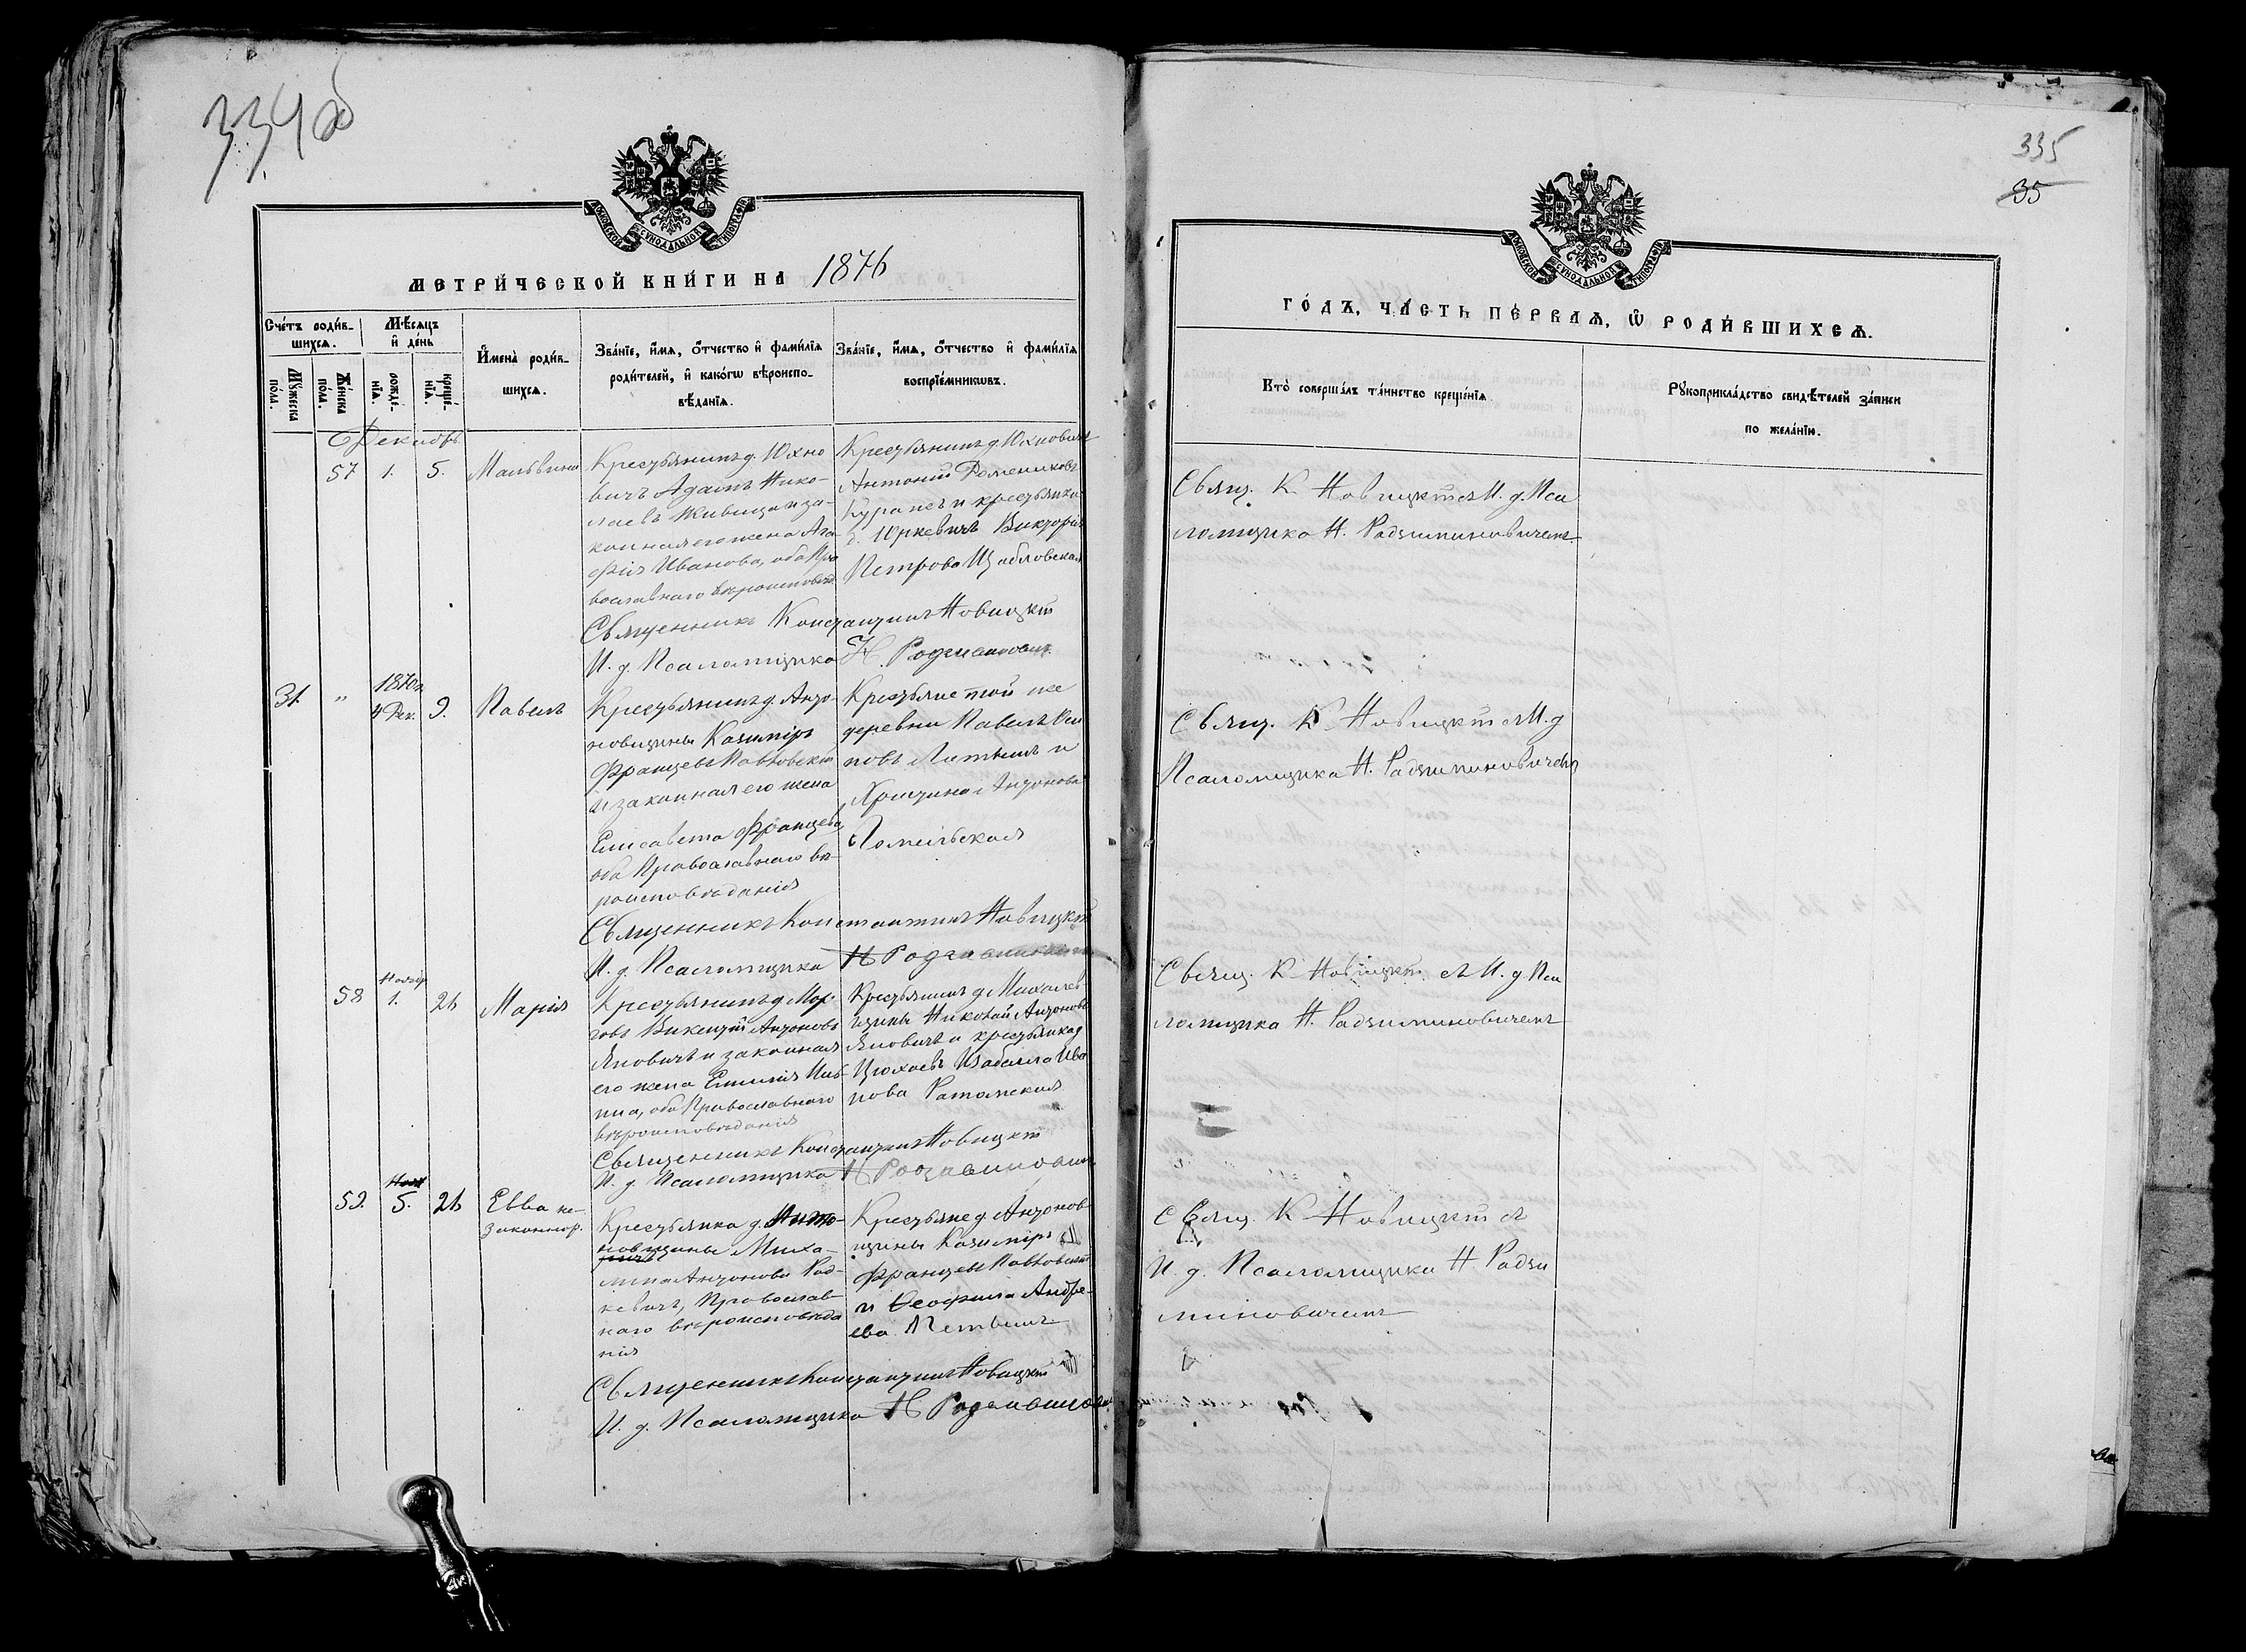 334 об
МОСКОВСКОЙ СѴНОДАЛЬНОЙ ТИПОГРАФІИ
МЕТРИ́ЧЕСКОЙ КНИ́ГИ НА 1876
Сче́тъ роди́в-
шихсѧ.
Мѣ́сѧцъ
и҆ де́нь
Мꙋ́жеска
по́ла.
Же́нска
по́ла.
рожде́-
нїѧ.
креще́-
нїѧ.
И҆мена̀ роди́в-
шихсѧ.
Зва́нїе, и҆́мѧ, ѻ҆́тчество и҆ фами́лїѧ
роди́телей, и҆ како́гѡ вѣроиспо-
вѣ́данїѧ.
Зва́нїе, и҆́мѧ, ѻ҆́тчество и҆ фами́лїѧ
воспрїе́мникѡвъ.
Декабрь
57 1. 5. Мальвина
Крестьянинъ д. Юхно
вичъ Адамъ Нико-
лаевъ Живица и за-
конная его жена Ага-
фія Иванова, оба Пра
вославнаго вѣроисповѣд.
Крестьянинъ д. Юхновичъ
Антоній
и крестьянка
д. Юркевичъ Викторія
Петрова
Священникъ Константинъ Новицкій
И. д. Псаломщика Н. Родзиминовичъ
31. " 1870 г. 4 Дек. 9. Павелъ
Крестьянинъ д. Анто-
новщины Казиміръ
Францевъ
и законная его жена
Елисавета Францева,
оба Православнаго вѣ-
роисповѣданія
Крестьяне той же
деревни Павелъ Оси
повъ и
Христина Антонова
Священникъ Константинъ Новицкій
И. д. Псаломщика Н Родзиминовичъ
58 Ноябр 1. 26 Марія
Крестьянинъ д. Мор-
говъ Викентій Антоновъ
Яновичъ и законная
его жена Емилія
оба Православнаго
вѣроисповѣданія
Крестьянинъ д Михалев
щины Николай Антоновъ
Яновичъ и крестьянка д
Изабелла Ива
нова Ратомская
Священникъ Константинъ Новицкій
И. д. Псаломщика Н Родзиминовичъ
59. 5. 26 Евва не-
законнор.
Крестьянка д. Анто-
новщины Миха-
лина Антонова Рад-
кевичъ, Православ-
наго вѣроисповѣда
нія
Крестьяне д Антонов-
щины Казиміръ
Францевъ
и Ѳеофила Андре-
ева
Священникъ Константинъ Новицкій
И. д. Псаломщика Н Родзиминовичъ
335
35
МОСКОВСКОЙ СѴНОДАЛЬНОЙ ТИПОГРАФІИ
ГО́ДЪ, ЧА́СТЬ ПЕ́РВАѦ, Ѡ҆ РОДИ́ВШИХСѦ.
Кто̀ соверша́лъ та́инство креще́нїѧ
Рꙋкоприкла́дство свидѣ́телей за́писи
по жела́нїю.
Свящ. К. Новицкій съ И. д. Пса
ломщика Н. Радзиминовичемъ
Свящ. К Новицкій съ И. д
Псаломщика Н. Радзиминовичемъ
Свящ. К Новицкій съ И. д. Пса
ломщика Н. Радзиминовичемъ
Свящ. К Новицкій съ
И. д. Псаломщика Н Радзи
миновичемъ